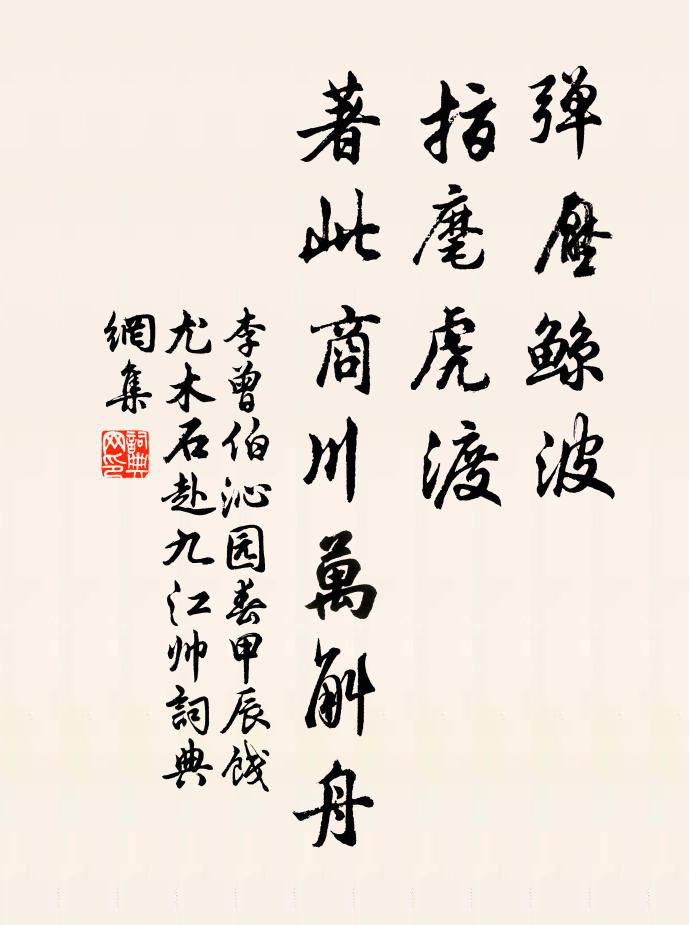 弹壓鲸波
指麾虎渡
著此商川萬斛舟
李曾伯沁园春甲辰饯
尤木石赴九江帅詞典
網集
詞典
网印